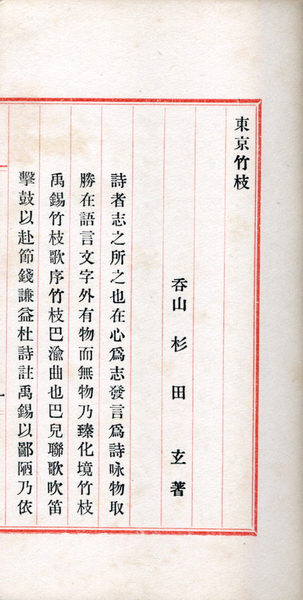 東京竹枝
呑山 杉田 玄著
詩者志之所之也在心爲志發言爲詩咏物取
勝在語言文字外有物而無物乃臻化境竹枝
禹錫竹枝歌序竹枝巴渝曲也巴兒聯歌吹笛
擊鼓以赴節錢謙益杜詩註禹錫以鄙陋乃依